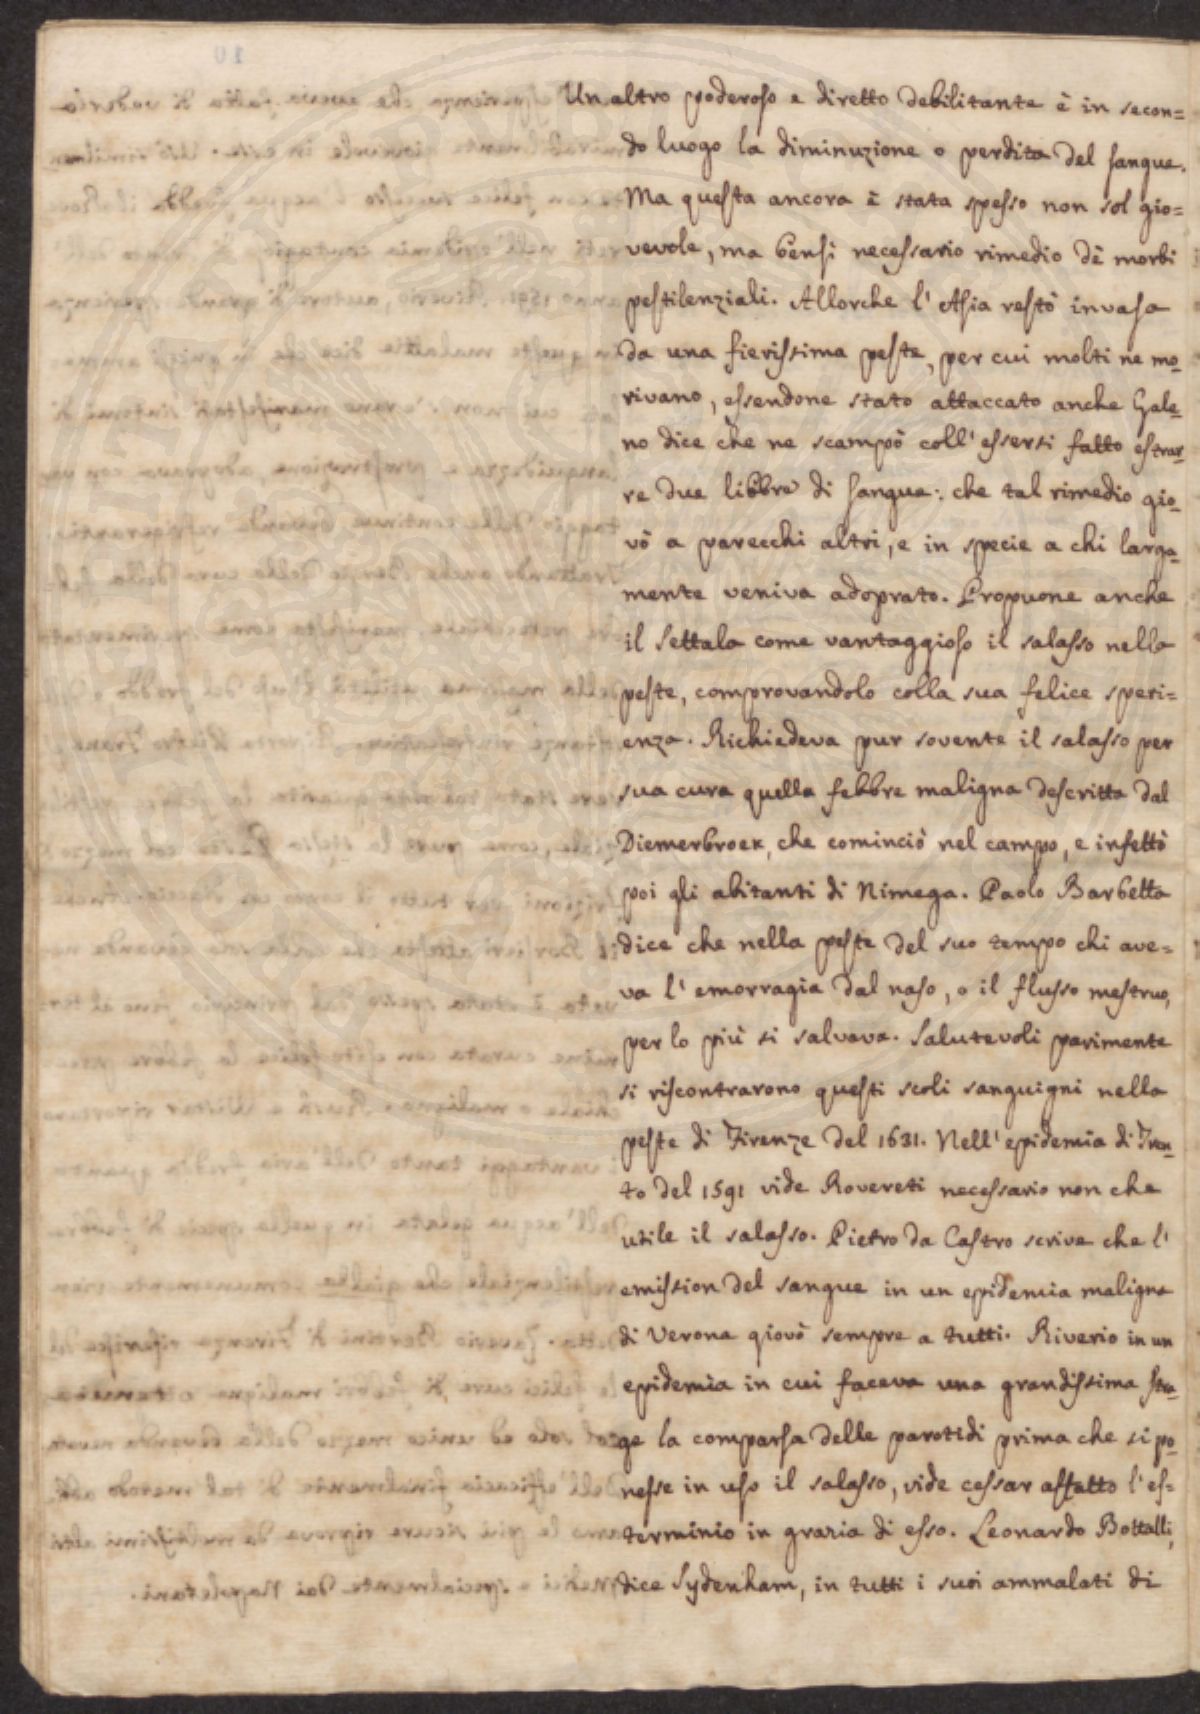 Un altro poderoso e diretto debilitante è in secon=
do luogo la diminuzione o perdita del sangue.
Ma questa ancora è stata spesso non sol gio=
vevole, ma bensi necessario rimedio dè morbi
pestilenziali. Allorche l' Asia restò invasa
da una fierissima peste, per cui molti ne mo_
rivano, essendone stato attaccato anche Gale_
no dice che ne scampò coll' essersi fatto estrar_
re due libbre di sangue: che tal rimedio gio_
vò a parecchi altri, e in specie a chi larga_
mente veniva adoprato. Propuone anche
il Settala come vantaggioso il salasso nella
peste, comprovandolo colla sua felice speri=
enza. Richiedeva pur sovente il salasso per
sua cura quella febbre maligna descritta dal
Diemerbroek, che cominciò nel campo, e infettò
poi gli abitanti di Nimega. Paolo Barbetta
dice che nella peste del suo tempo chi ave=
va l' emorragia dal naso, o il flusso mestruo,
per lo più si salvava. Salutevoli parimente
si riscontrarono questi scoli sanguigni nella
peste di Firenze del 1631. Nell' epidemia di Tren_
to del 1591 vide Rovereti necessario non che
utile il salasso. Pietro da Castro scrive che l'
emission del sangue in un epidemia maligna
di Verona giovò sempre a tutti. Riverio in un
epidemia in cui faceva una grandissima stra_
ge la comparsa delle parotidi prima che si po_
nesse in uso il salasso, vide cessar affatto l' es=
terminio in grazia di esso. Leonardo Bottalli,
dice Sydenham, in tutti i suoi ammalati di